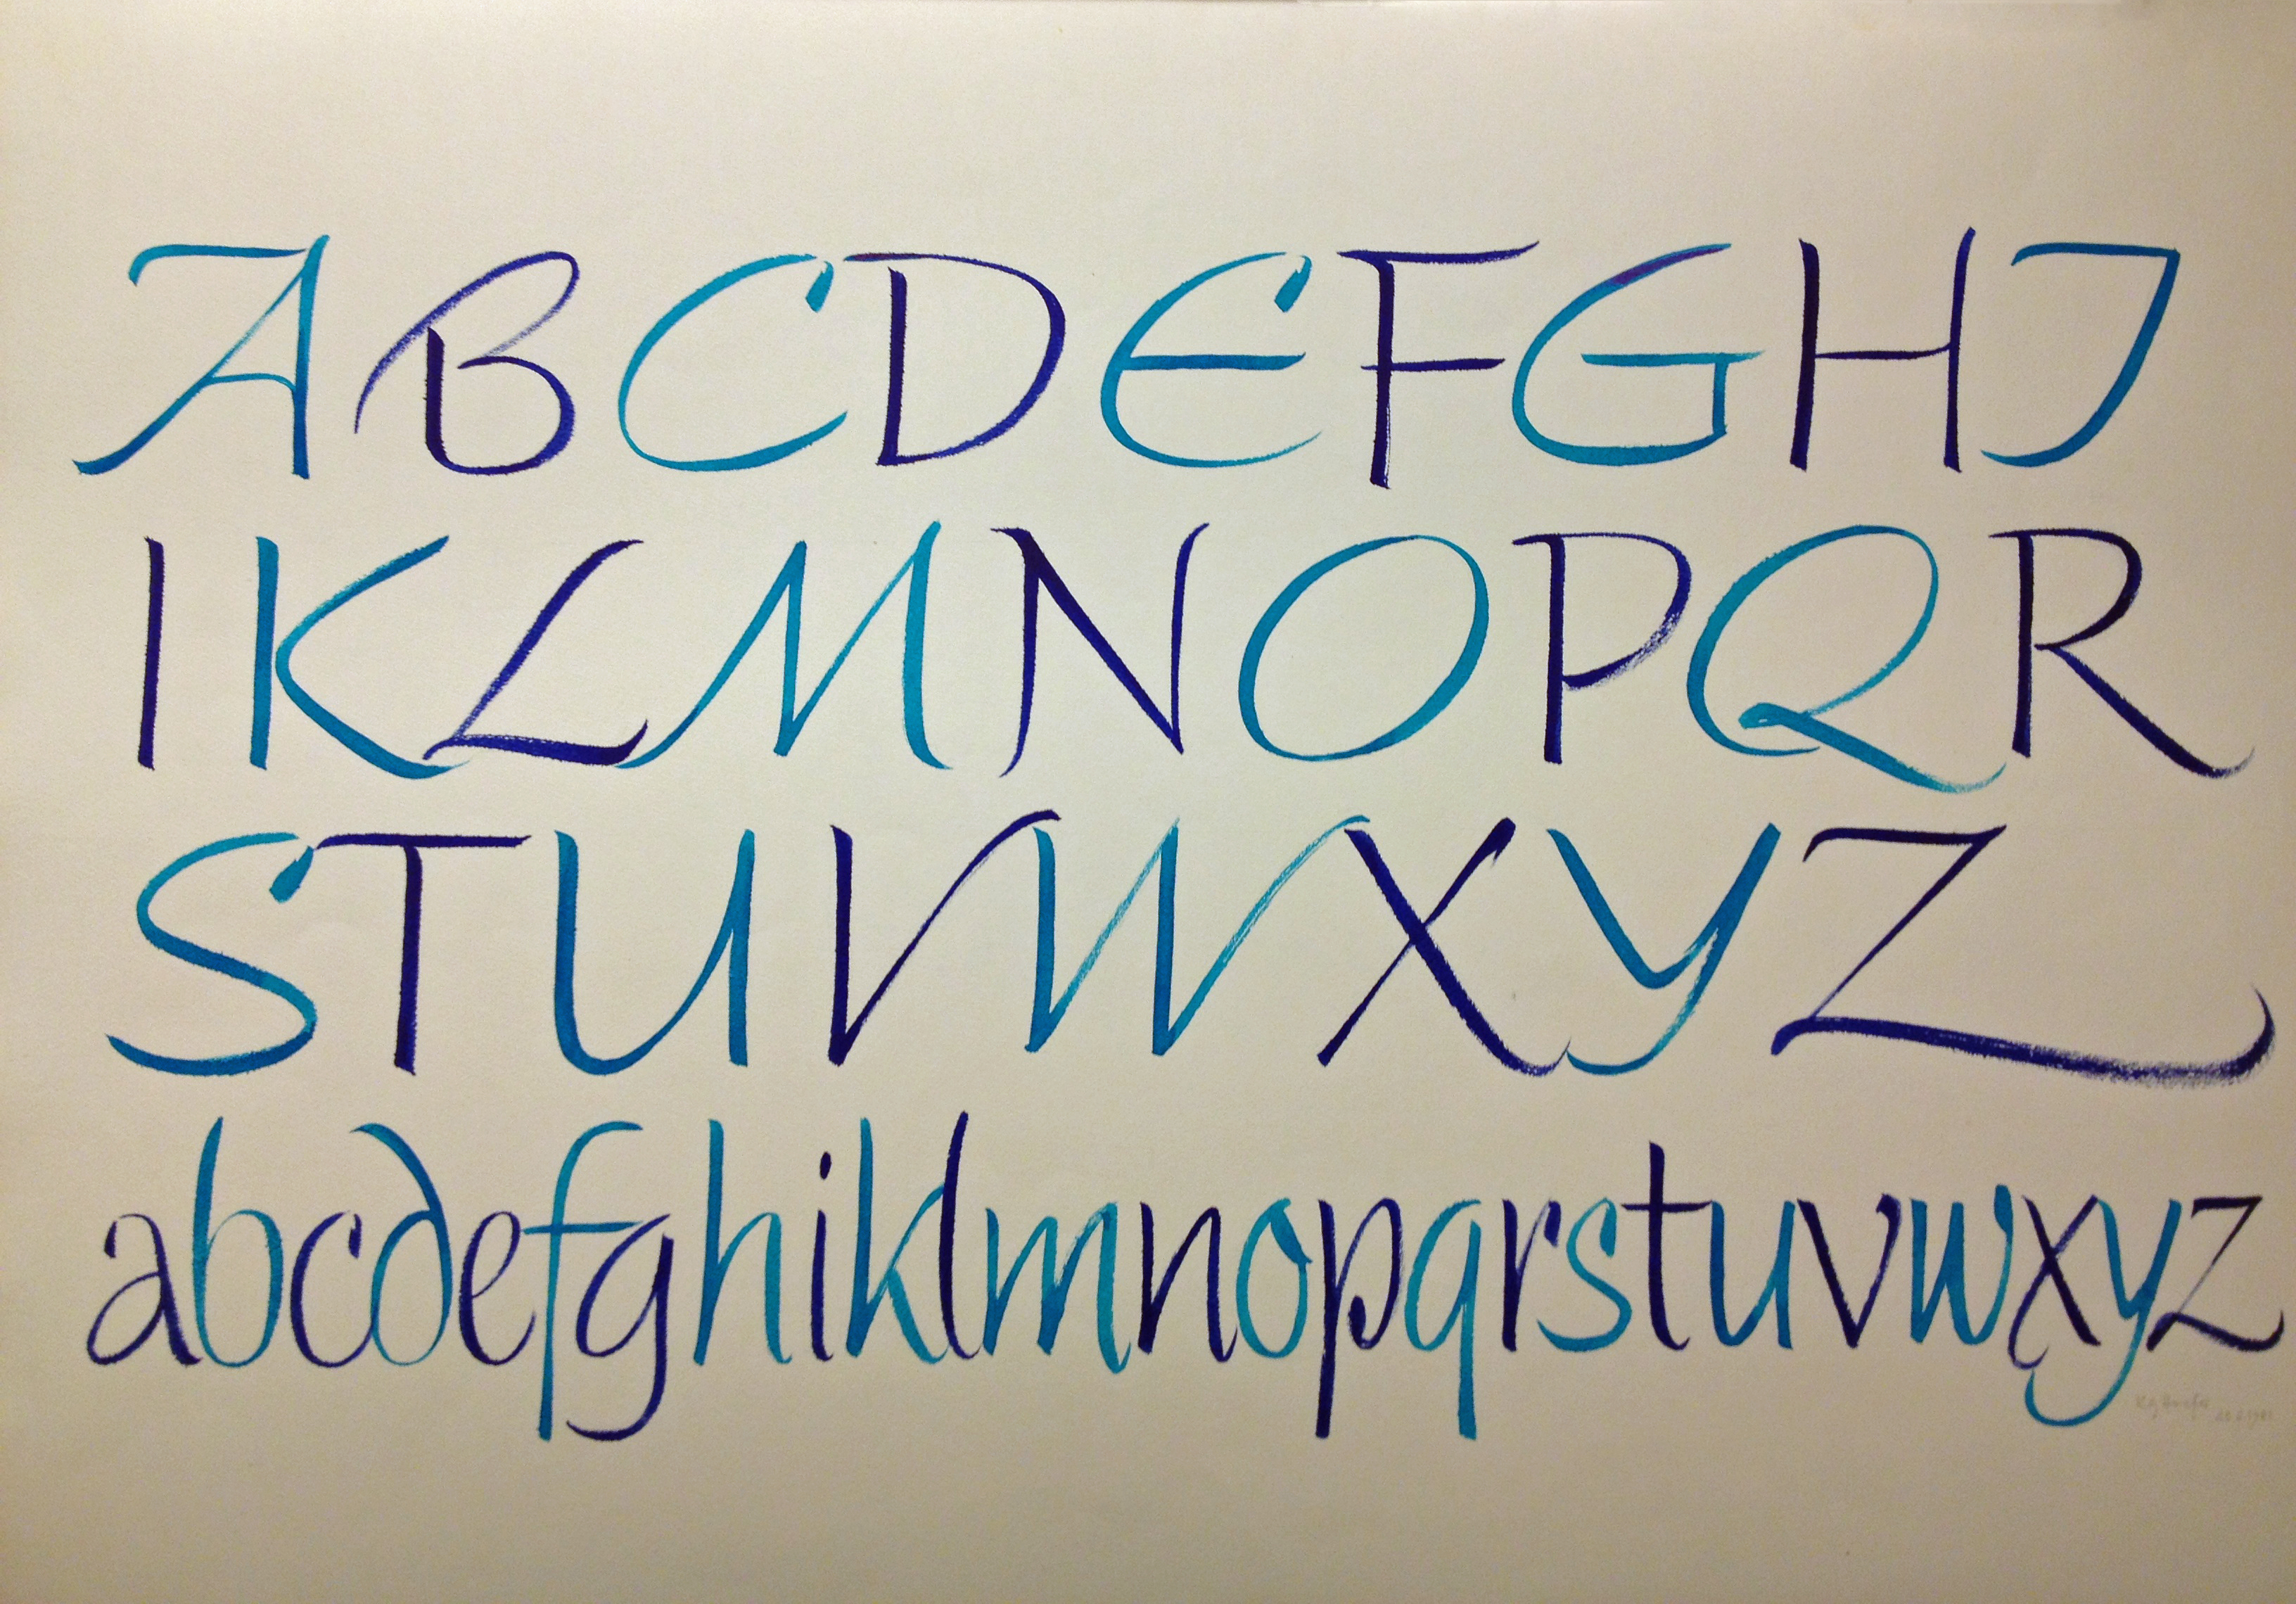 ABCDEFGHJ
IKLMNOPQR
STUVWXYZ
abcdefghiklmnopqrstuvwxyz